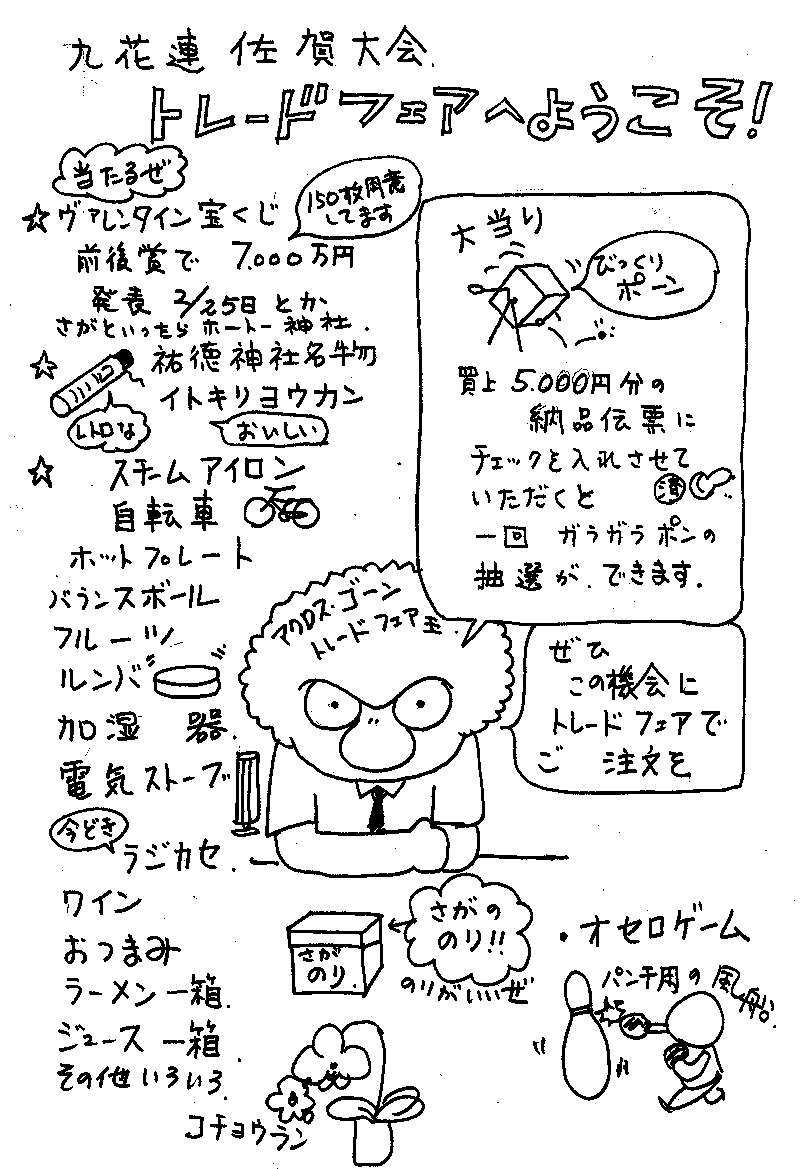 九花連 佐賀大会
トレードフェアへようこそ!
当たるぜ
☆ヴァレンタイン宝くじ
150枚用意
してます
前後賞で 7.000万円
発表 2/25日とか
さがといったらホートー神社.
☆ 祐徳神社名物
イトキリヨウカン
レトロな
おいしい
☆ スチームアイロン
自転車
ホットプレート
バランスボール
フルーツ
ルンバ
加湿器.
電気ストーブ
今どき
ラジカセ.
ワイン
おつまみ
ラーメン一箱.
ジュース一箱.
その他いろいろ.
大当り
びっくり
ポーン
買上 5.000円分の
納品伝票に
チェックを入れさせて
いただくと
済
一回 ガラガラポンの
抽選が.できます.
アクロス・ゴーン
トレードフェア玉
ぜひ
この機会に
トレードフェアで
ご注文を
さがの
のり!!
さが
のり.
のりがいいぜ
コチョウラン
・オセロゲーム
パンチ用の風船.